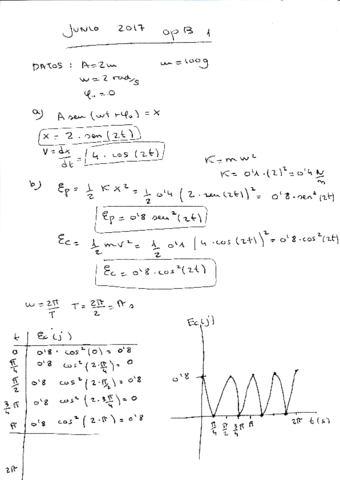 JUNIO 2017 opB 1
DATOS: A=2m m=100g
ω=2 rad/s
φ₀=0
a) A sen (ωt+φ₀) = x
x = 2·sen(2t)
V = dx/dt = 4·cos(2t)
K = mω²
K = 0'1·(2)² = 0'4 N/m
b) Ep = 1/2 K x² = 1/2 0'4 (2·sen(2t))² = 0'8·sen²(2t)
Ep = 0'8 sen²(2t)
Ec = 1/2 mv² = 1/2 0'1 (4·cos(2t))² = 0'8·cos²(2t)
Ec = 0'8·cos²(2t)
ω = 2π/T T = 2π/2 = π s
t Ec(j)
0 0'8·cos²(0) = 0'8
π/4 0'8 cos²(2·π/4) = 0
π/2 0'8 cos²(2·π/2) = 0'8
3/4 π 0'8 cos²(2·3π/4) = 0
π 0'8 cos²(2·π) = 0'8
2π
Ec(j)
0'8
π/4 π/2 3/4 π π 2π t(s)